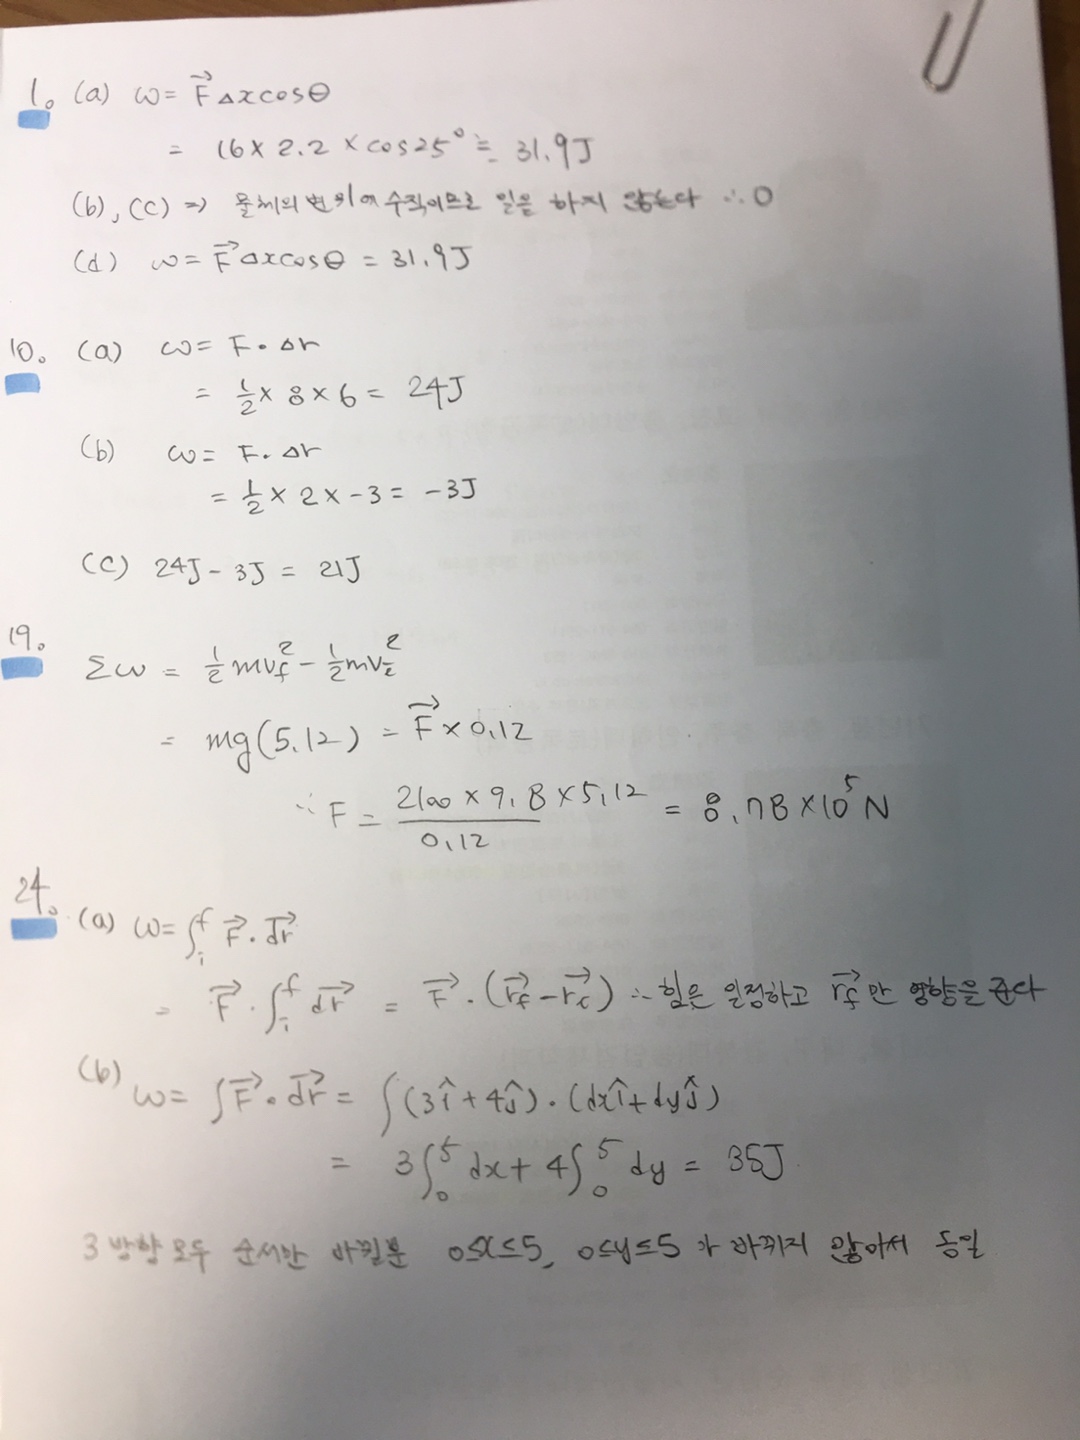 1. (a) ω = F⃗ Δxcosθ
= 16 × 2.2 × cos25° ≒ 31.9J
(b), (c) ⇒ 물체의 변위에 수직이므로 일을 하지 않는다 ∴ 0
(d) ω = F⃗ Δxcosθ = 31.9J
10. (a) ω = F · Δr
= 1/2 × 8 × 6 = 24J
(b) ω = F · Δr
= 1/2 × 2 × -3 = -3J
(c) 24J - 3J = 21J
19. Σω = 1/2 mv_f² - 1/2 mv_i²
= mg(5.12) = F⃗ × 0.12
∴ F = (2100 × 9.8 × 5.12)/0.12 = 8.78 × 10⁵ N
24. (a) ω = ∫_i^f F⃗ · dr⃗
= F⃗ · ∫_i^f dr⃗ = F⃗ · (r⃗_f - r⃗_i) ∴ 힘은 일정하고 r⃗_f만 영향을 준다
(b) ω = ∫F⃗ · dr⃗ = ∫(3î + 4ĵ) · (dxî + dyĵ)
= 3∫_0^5 dx + 4∫_0^5 dy = 35J
3 방향 모두 순서만 바뀔뿐 0≤x≤5, 0≤y≤5 가 바뀌지 않아서 동일